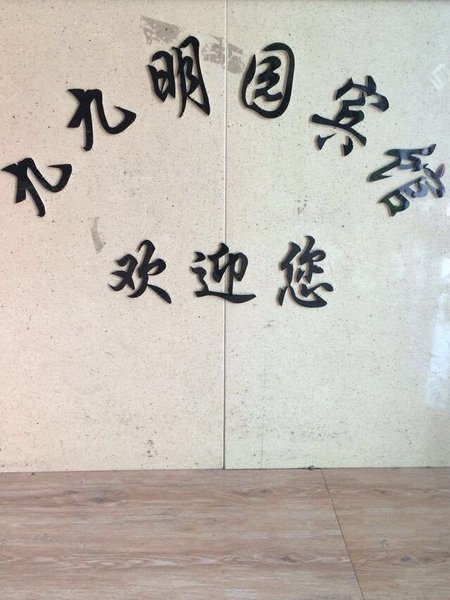 九九明园宾馆
欢迎您